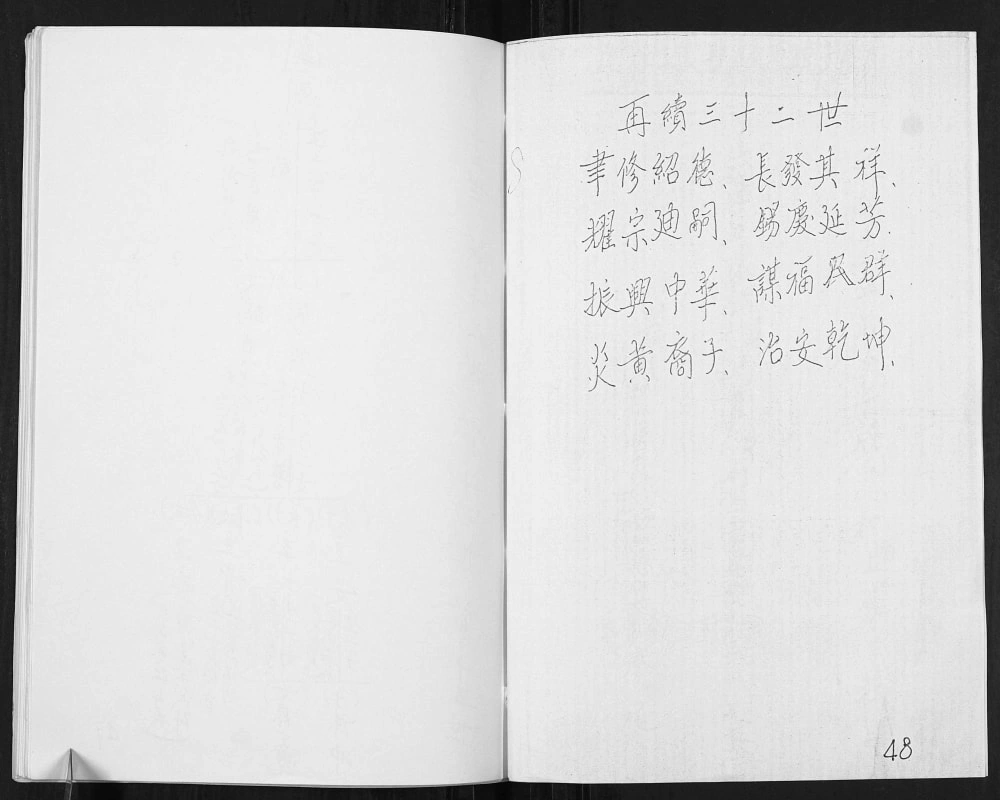 再續三十二世
聿修紹德、長發其祥、
耀宗廸嗣、錫慶延芳.
振興中華、謀福民群、
炎黃裔子、治安乾坤、
48